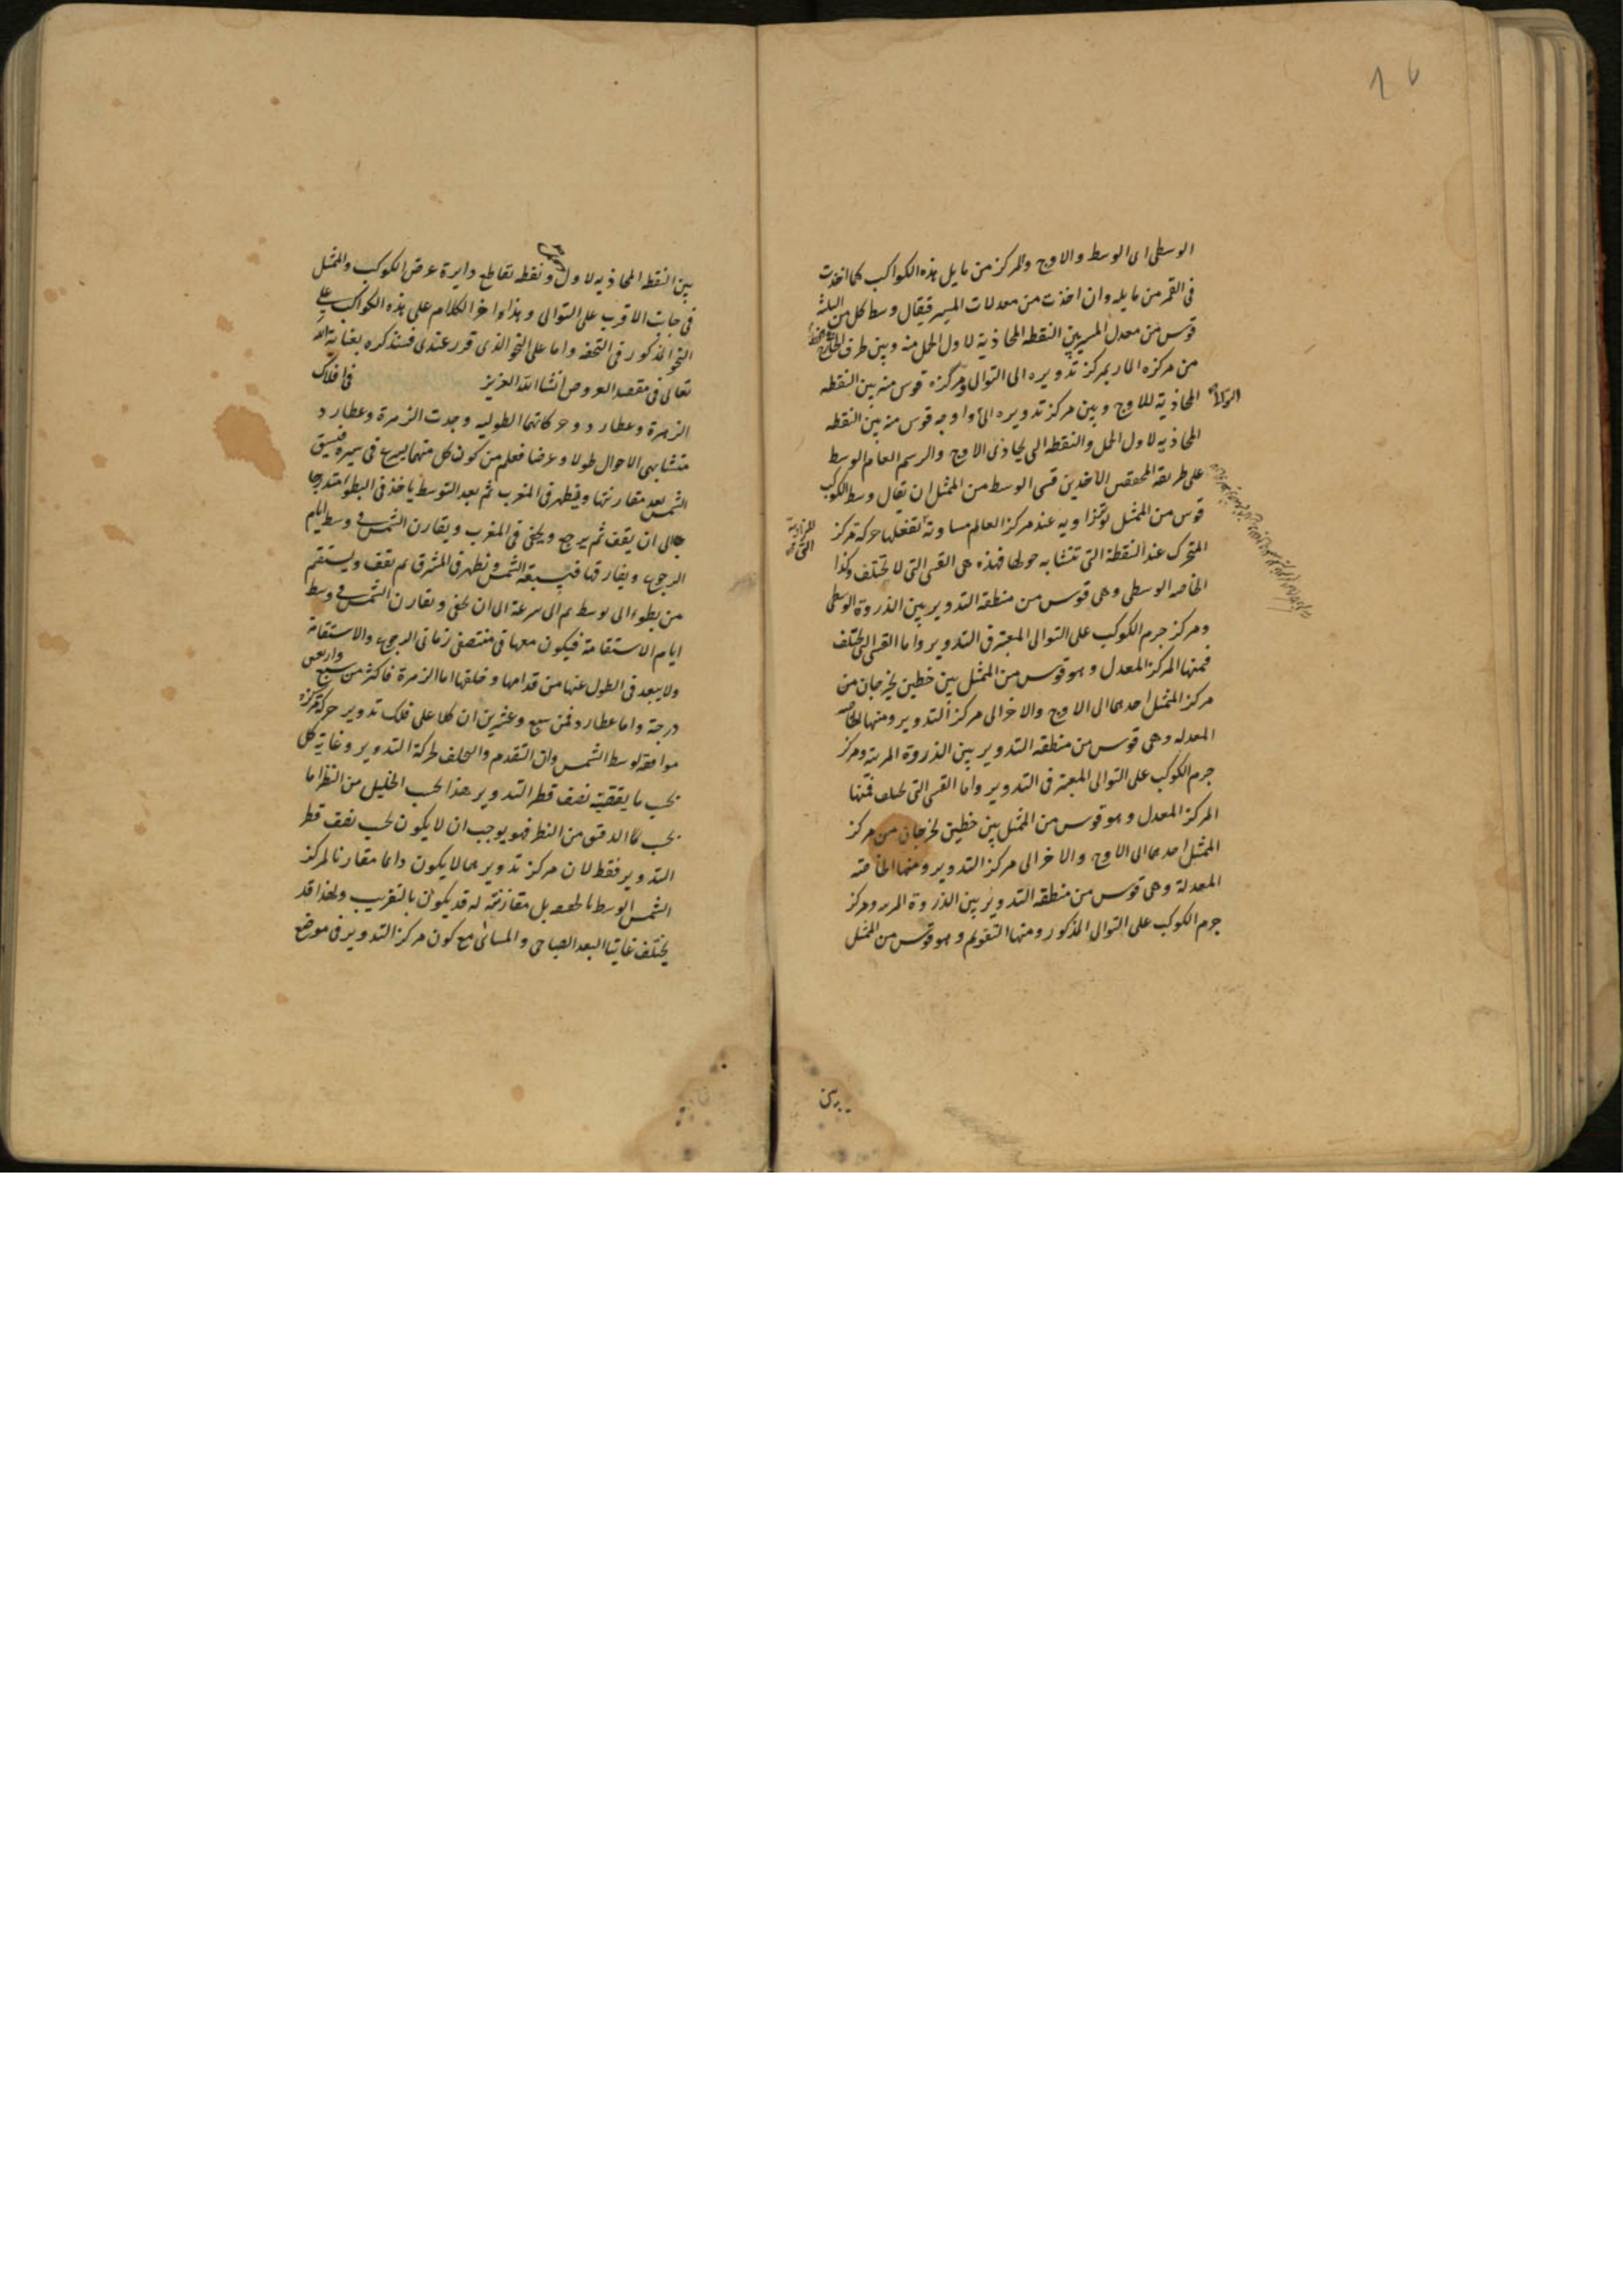 الوسطى اى الوسط والاوج والمركز من مايل هذه الكواكب كما اخذت
فى القمر من مايله وان اخذت من معدلات المسير فيقال وسط كل من الثلثة
قوس من معدل المسير بين النقطه المحاذية لاول الحمل منه وبين طرف الخط الخارج
من مركزه المار بمركز تدويره الى التوالى ومركزه قوس منه بين النقطه
المحاذية للاوج وبين مركز تدويره الى واوجه قوس منه بين النقطه
المحاذيه لاول الحمل والنقطه التى يحاذى الاوج والرسم العام الوسط
على طريقة المحققين الآخذين قسى الوسط من الممثل ان يقال وسط الكوكب
قوس من الممثل يوتر زاويه عند مركز العالم مساوية تفعلها حركة مركز
المتحرك عند النقطة التى تتشابه حولها فهذه هى القسى التى لا تختلف وكذا
الخاصه الوسطى وهى قوس من منطقه التدوير بين الذروة الوسطى
ومركز جرم الكوكب على التوالى المعتبر فى التدوير واما القسى التى تختلف
فمنها المركز المعدل وهو قوس من الممثل بين خطين يخرجان من
مركز الممثل احدهما الى الاوج والاخر الى مركز التدوير ومنها الخاصه
المعدله وهى قوس من منطقه التدوير بين الذروة المرئية ومركز
جرم الكوكب على التوالى المعتبر فى التدوير واما القسى التى تختلف فمنها
المركز المعدل وهو قوس من الممثل بين خطين يخرجان من مركز
الممثل احدهما الى الاوج والاخر الى مركز التدوير ومنها الخاصة
المعدلة وهى قوس من منطقه التدوير بين الذروة المرئيه ومركز
جرم الكوكب على التوالى المذكور ومنها التقويم وهو قوس من الممثل
بين النقطه المحاذيه لاول ونقطه تقاطع دايرة عرض الكوكب والممثل
فى جانب الاقرب على التوالى وهذا اخر الكلام على هذه الكواكب على
النحو المذكور فى التحفه واما على النحو الذى قرر عندى فسنذكره بعناية الله
تعالى فى مقصد العروض انشا الله العزيز فى افلاك
الزهرة وعطارد وحركاتهما الطوليه وجدت الزهرة وعطارد
متشابهى الاحوال طولا وعرضا فعلم من كون كل منهما يسرع فى سيره فيسبق
الشمس بعد مقارنتها ويظهر فى المغرب ثم بعد التوسط ياخذ فى البطوء متدرجا
الى ان يقف ثم يرجع ويخفى فى المغرب ويقارن الشمس فى وسط ايام
الرجوع ويفارقها فيسبقه الشمس ويظهر فى المشرق ثم يقف ويستقيم
من بطوء الى توسط ثم الى سرعة الى ان يخفى ويقارن الشمس فى وسط
ايام الاستقامة فيكون معها فى منتصفى زمانى الرجوع والاستقامة
ولا يبعد فى الطول عنها من قدامها وخلفها اما الزهرة فاكثر من سبع واربعين
درجة واما عطارد فمن سبع وعشرين ان كلا على فلك تدوير حركة مركزه
موافقة لوسط الشمس وان التقدم والتخلف لحركة التدوير وغاية كل
بحسب ما يقتضيه نصف قطر التدوير هذا بحسب الجليل من النظر اما
بحسب الدقيق من النظر فهو يوجب ان لا يكون بحسب نصف قطر
التدوير فقط لان مركز تدويرهما لا يكون دائما مقارنا لمركز
الشمس الوسط بالحقيقه بل مقارنته له قد يكون بالتقريب ولهذا قد
يختلف غايتا البعد الصباحى والمسائى مع كون مركز التدوير فى موضع
بين